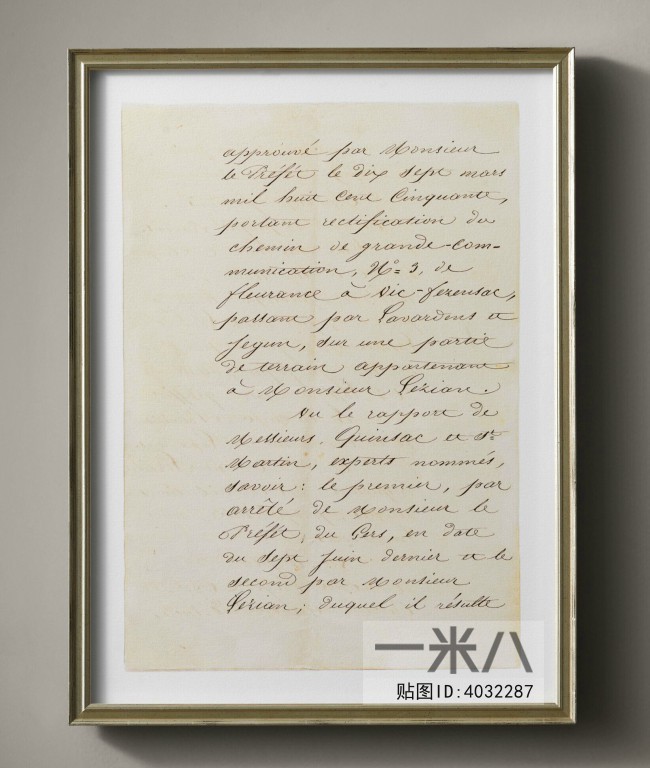 approuvé par Monsieur
le Préfét le dix sept mars
mil huit cent Cinquante,
portant rectification du
chemin de grande-com-
munication, N° 3, de
fleurance à Vic-fezensac,
passant par Lavardens et
Jegun, sur une partie
de terrain appartenant
à Monsieur Lézian.
Vu le rapport de
Messieurs, Quinsac et St
Martin, experts nommés,
savoir : le premier, par
arrêté de Monsieur le
Préfét, du Gers, en date
du sept Juin dernier et le
second par Monsieur
Lézian; duquel il résulte
一米八
贴图ID:4032287